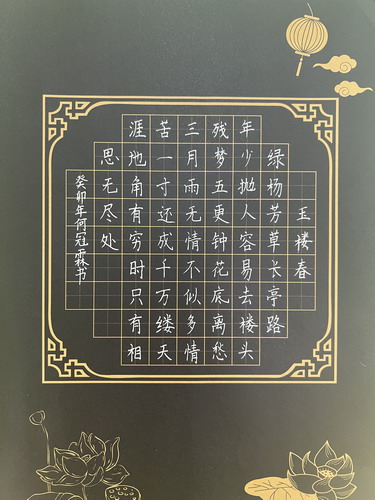 玉楼春
绿杨芳草长亭路
年少抛人容易去楼头
残梦五更钟花底离愁
三月雨无情不似多情
苦一寸还成千万缕天
涯地角有穷时只有相
思无尽处
癸卯年何冠霖书